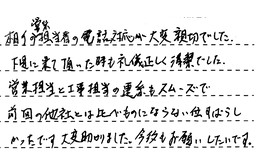 営業
初めの担当者の電話対応が大変親切でした。
下見に来て頂いた時も礼儀正しく清潔でした。
営業担当と工事担当の連系もスムーズで
前回の他社とは比べものにならない位すばらし
かったです。大変助かりました。今後もお願いしたいです。